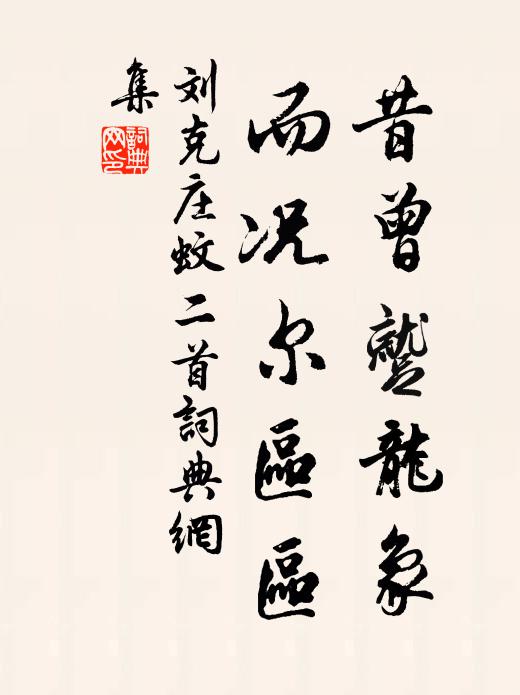 昔曾蹔龍象
而况尔區區
刘克庄蚊二首詞典網
集
詞典網印